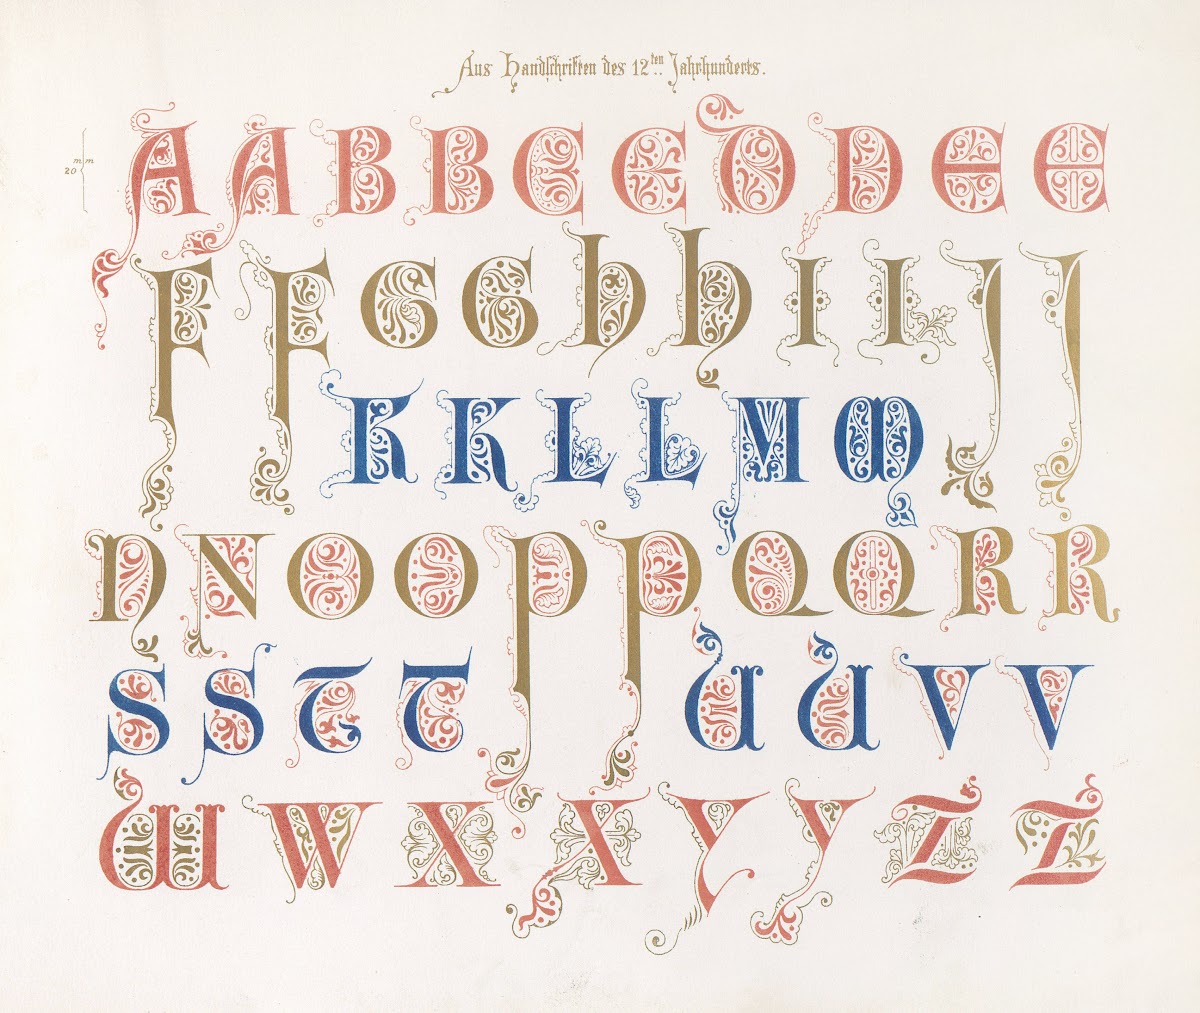 Aus Handschriften des 12ten Jahrhunderts.
m m
20
A A B B C C D D E E
F F G G h h I I J J
K K L L M M
N N O O P P Q Q R R
S S T T U U V V
W W X X Y Y Z Z